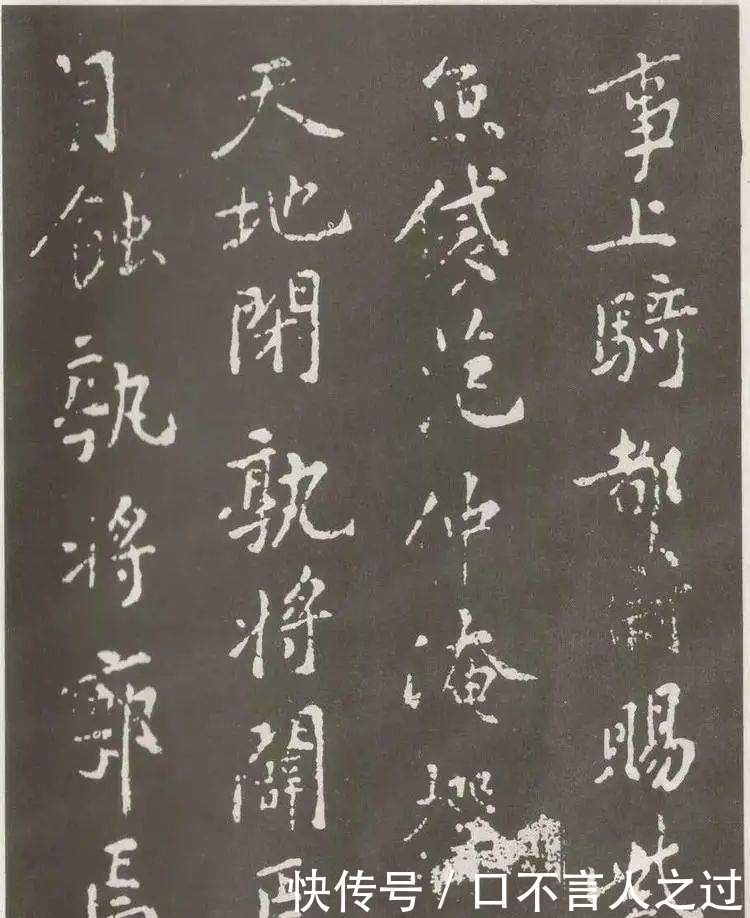 事上騎都尉賜
魚袋范仲淹撰
天地閉孰将闢焉
月蝕孰将廓焉
快传号 / 口不言人之过